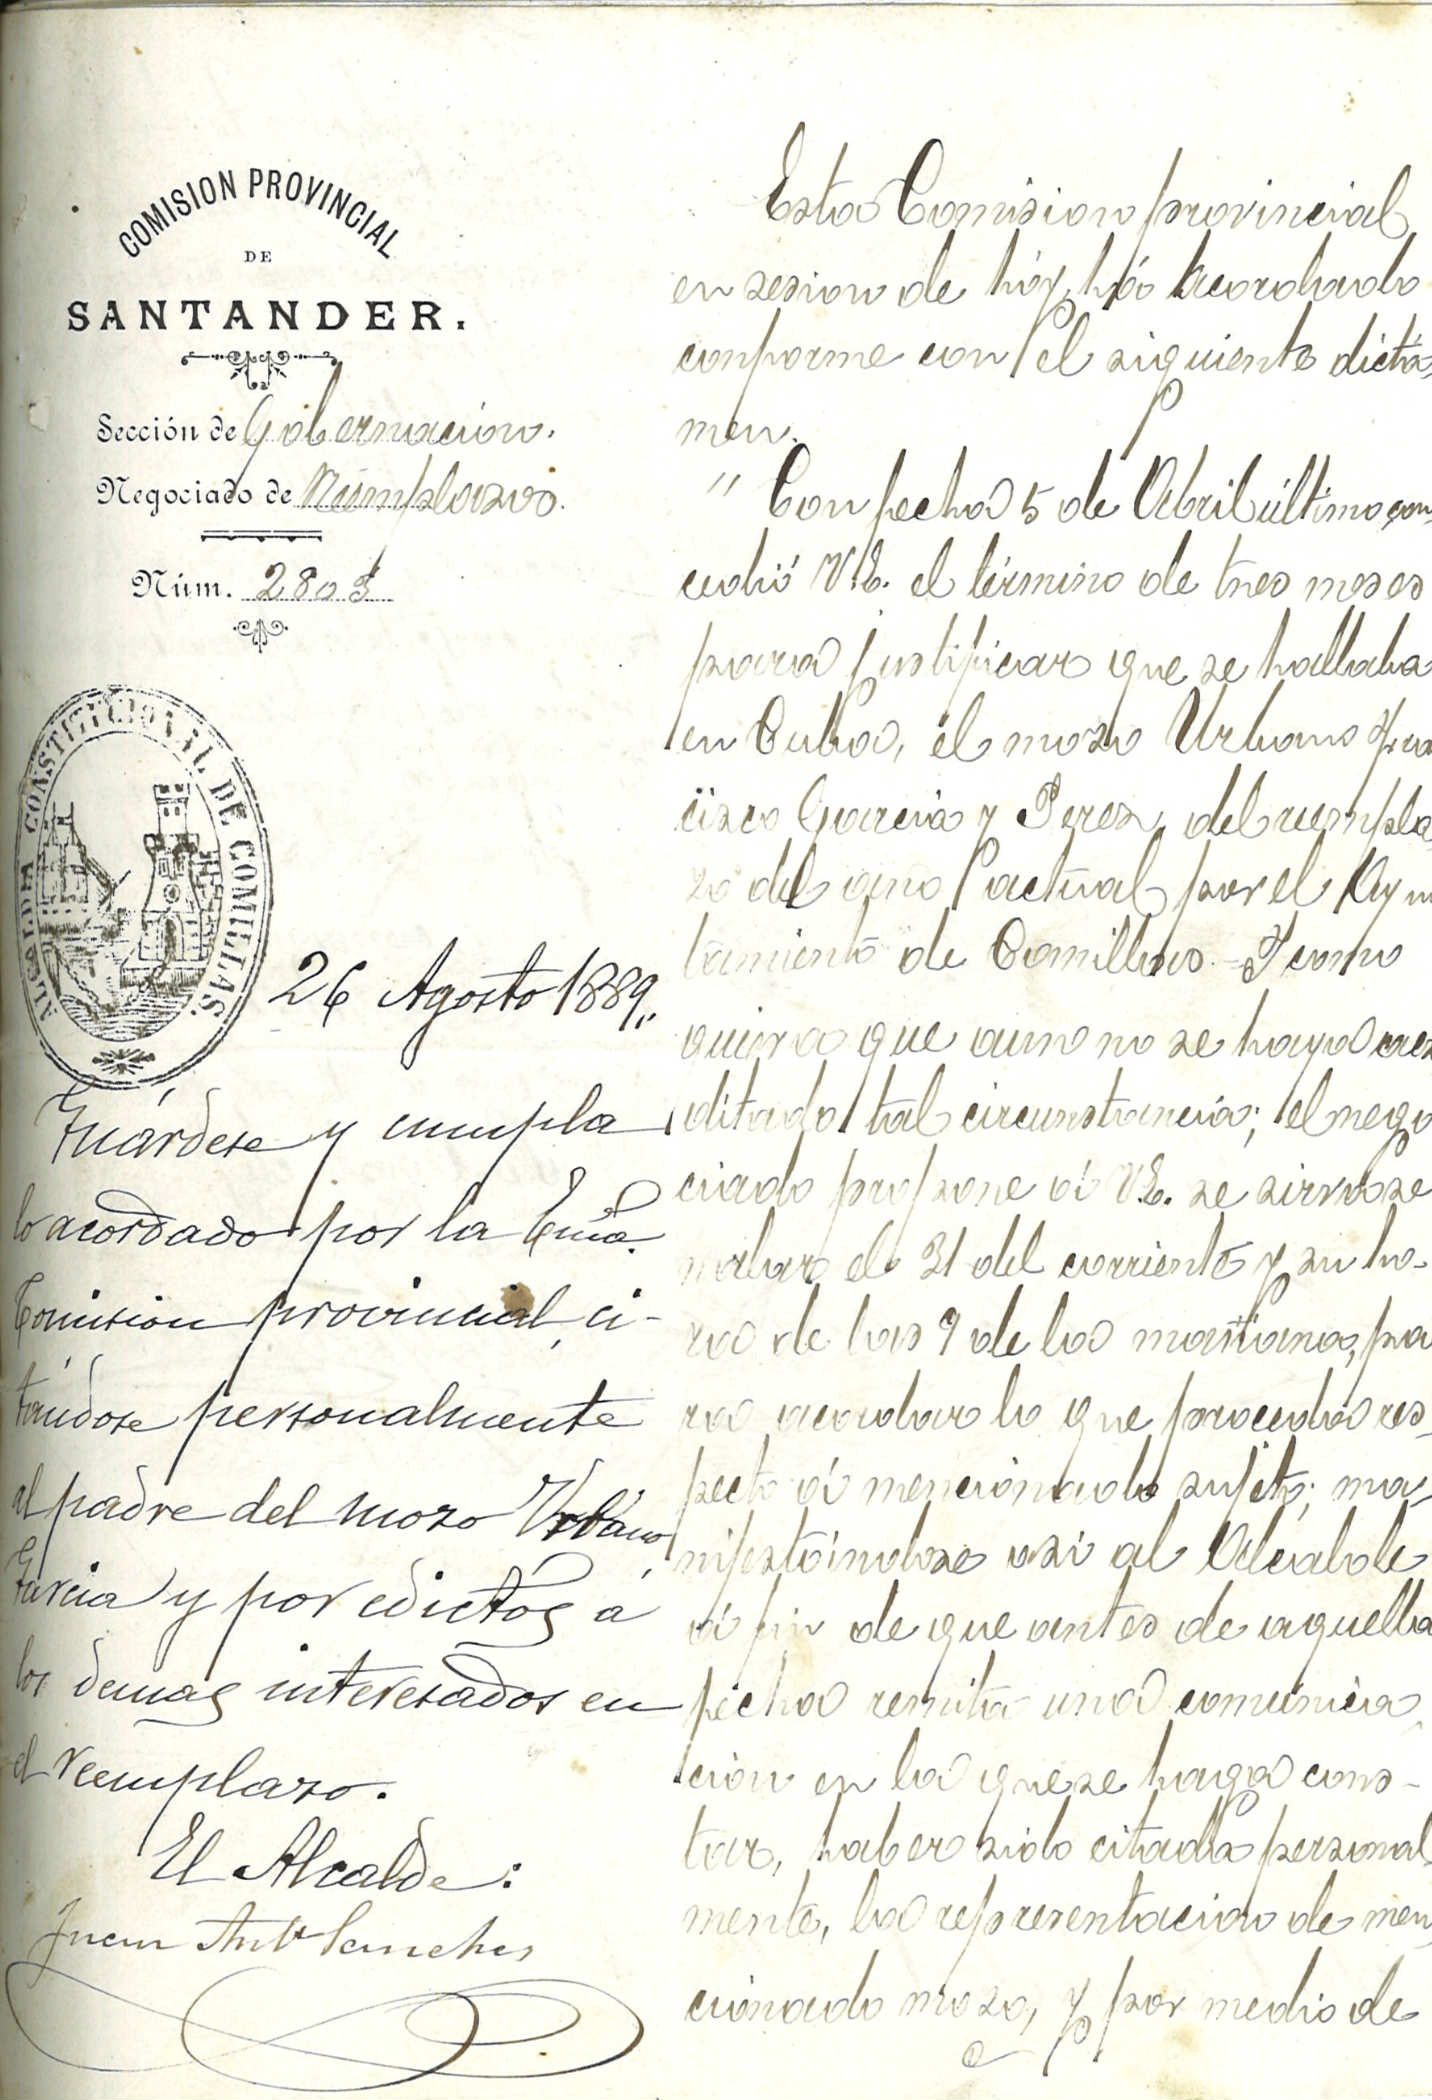 COMISION PROVINCIAL
DE
SANTANDER.
Sección de Gobernacion.
Negociado de Reemplazos.
Núm. 2803
ALCALDIA CONSTITUCIONAL DE COMILLAS.
26 Agosto 1889,,
Guárdese y cumpla
lo acordado por la Excma.
Comision provincial, ci-
tándose personalmente
al padre del mozo Urbano
Garcia y por edictos á
los demas interesados en
el reemplazo.
El Alcalde:
Juan Anto Sanchez
Esta Comision provincial
en sesion de hoy, há acordado
conforme con el siguiente dictá-
men.
" Con fecha 5 de Abril último con-
cedió V.E. el término de tres meses
para justificar que se hallaba
en Cuba, el mozo Urbano Fran
cisco Garcia y Perez, del reempla-
zo del año actual por el Ayun
tamiento de Comillas.=Y como
quiera que aun no se haya acre
ditado tal circunstancia; el nego
ciado propone á V.E. se sirva se
ñalar el 31 del corriente y su ho-
ra de las 9 de la mañana, pa
ra acordar lo que proceda res-
pecto á mencionado sujeto; ma-
nifestándose asi al Alcalde
á fin de que antes de aquella
fecha remita una comunica
cion en la que se haga cons-
tar, haber sido citada personal-
mente, la representacion de men-
cionado mozo, y por medio de